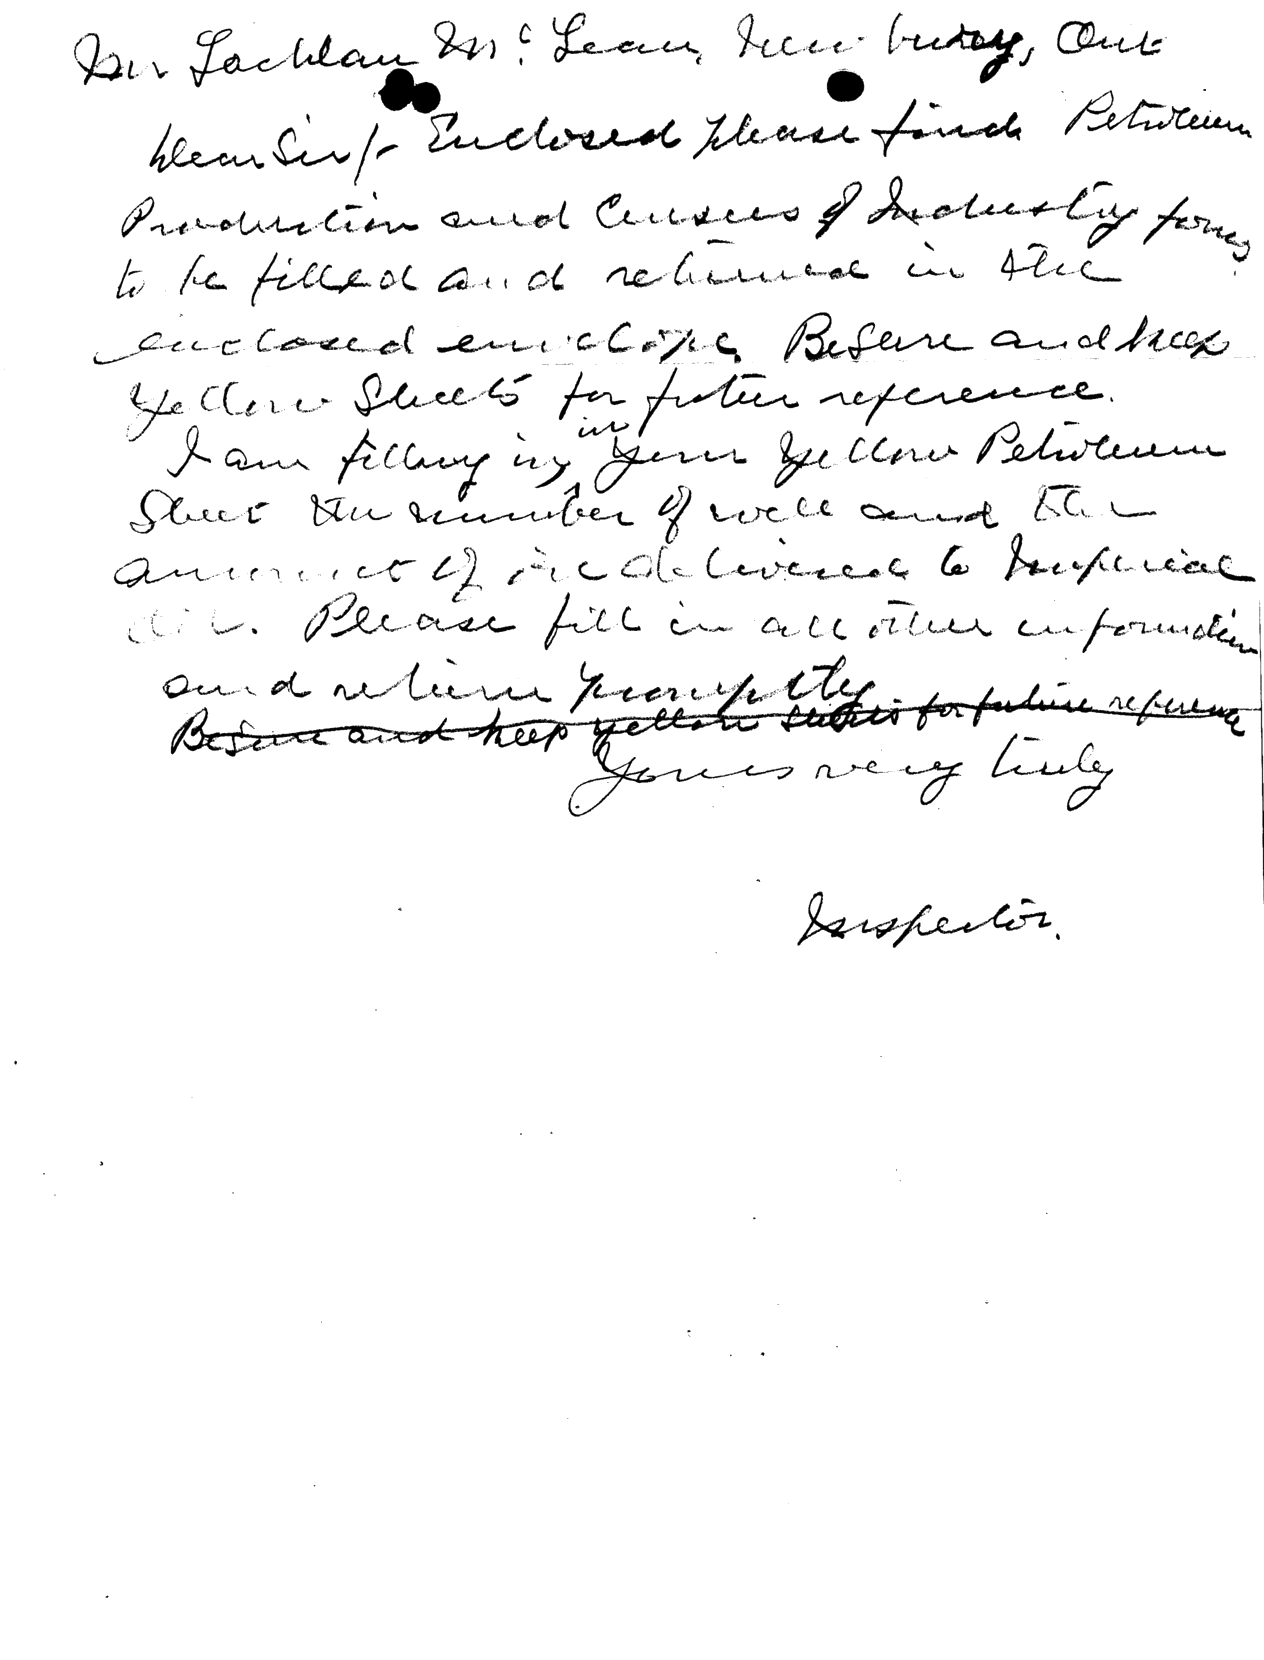 Mr Lachlan Mc Lean, Newbury, Ont
Dear Sir/- Enclosed please find Petroleum
Production and Census of Industry forms
to be filled and returned in the
enclosed envelope. Be sure and keep
yellow sheets for future reference.
I am filling in, in your yellow Petroleum
Sheet the number of well and the
amount of oil delivered to Imperial
Oil. Please fill in all other information
and return promptly
Be sure and keep yellow sheets for future reference
Yours very truly
Inspector.